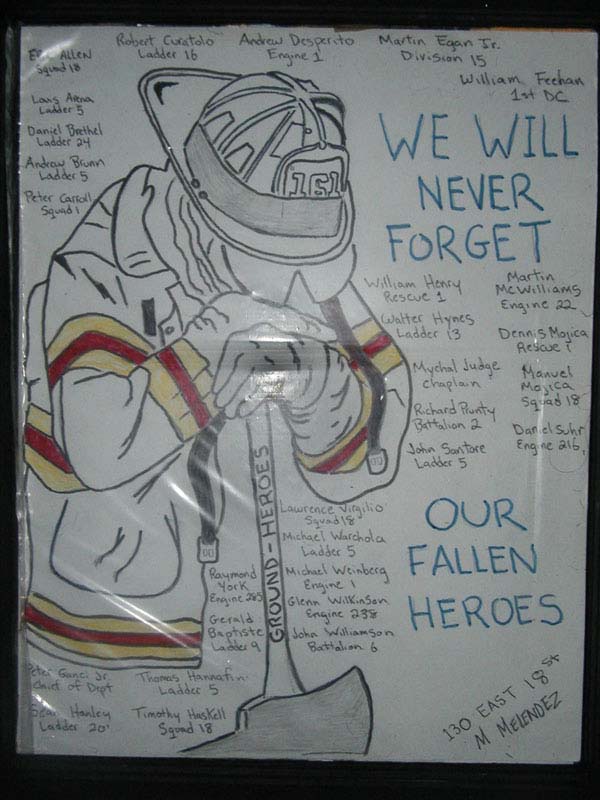 Eric ALLEN
Squad 18
Robert Curatolo
Ladder 16
Andrew Desperito
Engine 1
Martin Egan Jr.
Division 15
William Feehan
1st DC
Louis Arena
Ladder 5
Daniel Brethel
Ladder 24
Andrew Brunn
Ladder 5
Peter Carroll
Squad 1
161
WE WILL
NEVER
FORGET
William Henry
Rescue 1
Walter Hynes
Ladder 13
Mychal Judge
chaplain
Richard Prunty
Battalion 2
John Santore
Ladder 5
Martin
McWilliams
Engine 22
Dennis Mojica
Rescue 1
Manuel
Mojica
Squad 18
Daniel Suhr
Engine 216
GROUND-HEROES
Lawrence Virgilio
Squad 18
Michael Warchola
Ladder 5
Michael Weinberg
Engine 1
Glenn Wilkinson
Engine 238
John Williamson
Battalion 6
Raymond
York
Engine 285
Gerald
Baptiste
Ladder 9
OUR
FALLEN
HEROES
Peter Ganci Jr.
Chief of Dept
Thomas Hannafin
Ladder 5
Sean Hanley
Ladder 20
Timothy Haskell
Squad 18
130 EAST 18 st
M MELENDEZ